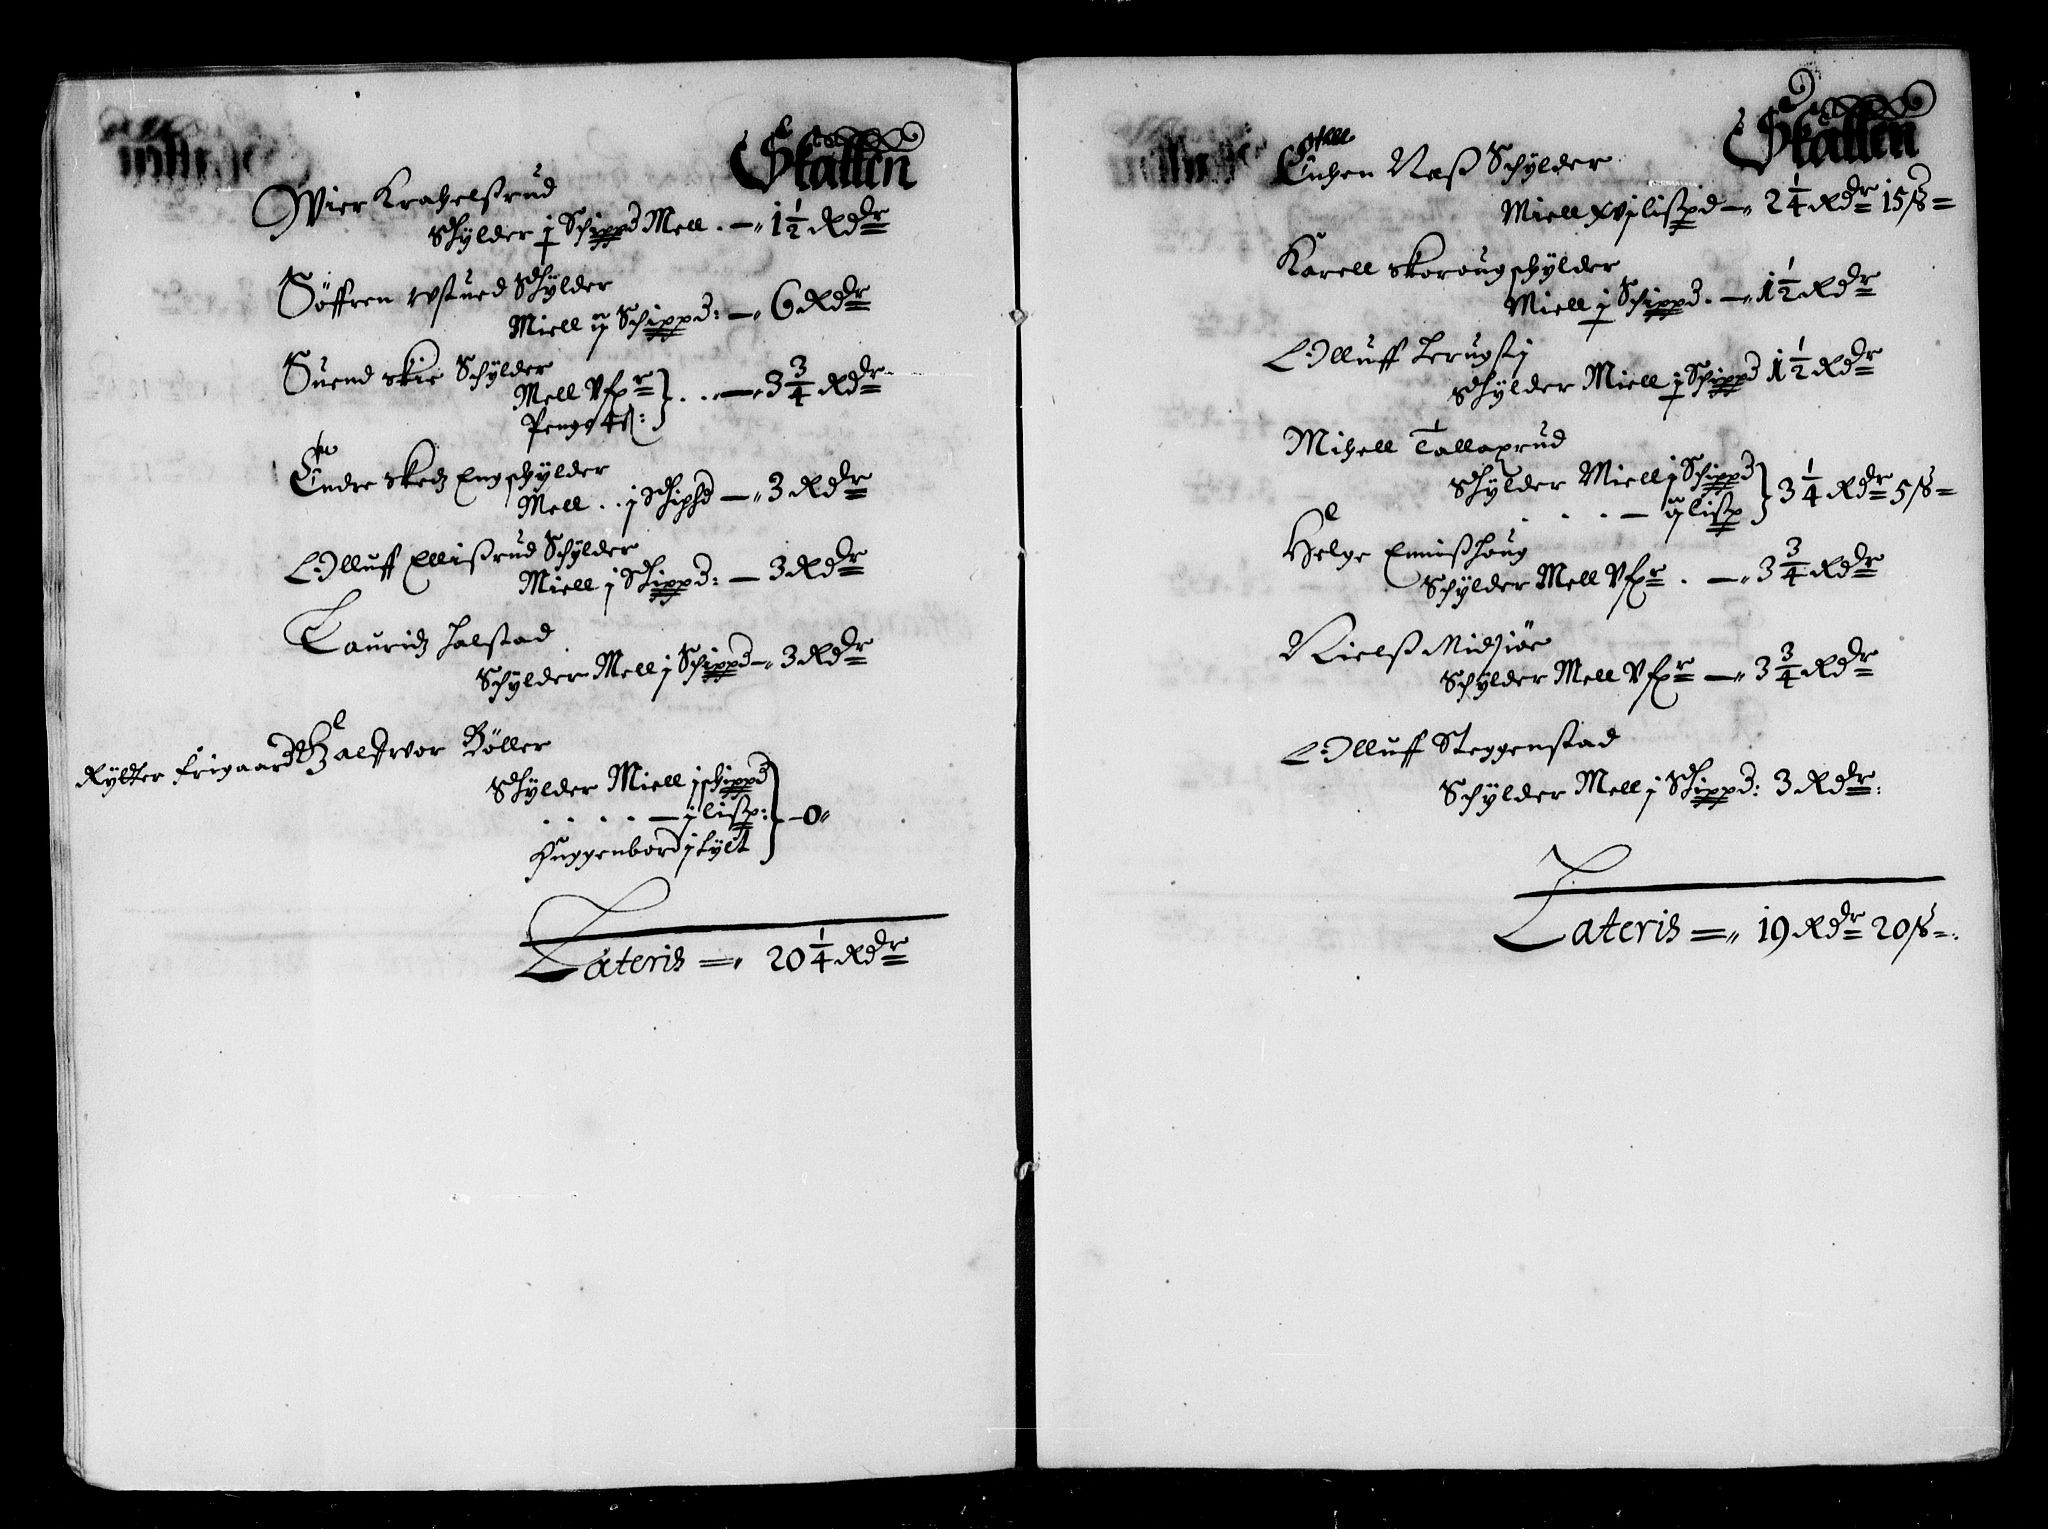 Skatten
Wier Krahelßrud
Schylder j Schippd Mell . — 1½ Rdr
Söffren
Schylder
Miell ij Schippd: — 6 Rdr
Suend Skie Schylder
Mell V fxr
Penge 4 ß: } . . — 3¾ Rdr
Endre Eng schylder
Mell . . j Schipd — 3 Rdr
Olluff Ellißrud Schylder
Miell j Schippd: — 3 Rdr
Lauridz Halstad
Schylder Mell j Schippd — 3 Rdr
Rytter frigaard Halfwor Böller
Schylder Miell j schippd
. . . . — j lisp: } — 0
Huggenbord j tylt
Lateris = 20¼ Rdr
Skatten
Næß Schylder
Miell xvj lißpd — 2¼ Rdr 15 ß
Karell Skoroug schylder
Miell j Schippd . — 1½ Rdr
Olluff
Schylder Miell j Schippd 1½ Rdr
Mihell Tallaxrud
Schylder Miell j Schippd
. . . — ij lisp } 3¼ Rdr 5 ß
Helge Ennißhoug
Schylder Mell V fxr . — 3¾ Rdr
Nielß Midsiøe
Schylder Mell V fxr — 3¾ Rdr
Olluff Steggenstad
Schylder Mell j Schippd: 3 Rdr:
Lateris = 19 Rdr 20 ß